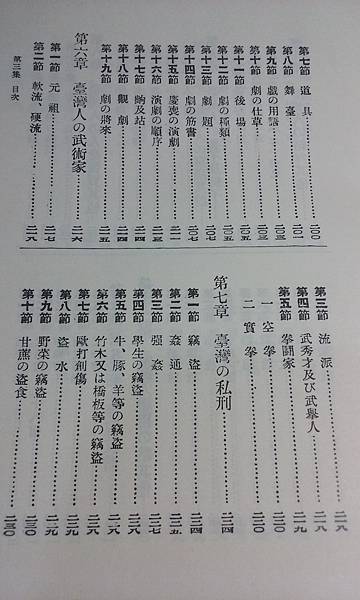 第七節 道具……二〇〇
第八節 舞臺……
第九節 戲の用語……二〇三
第十節 劇の仕草……二〇三
第十一節 後場……二〇五
第十二節 劇の種類……二〇五
第十三節 劇題……二〇七
第十四節 劇の筋書……二〇七
第十五節 慶喪の演劇……二一一
第十六節 演劇の順序……二一三
第十七節 齣及站……二一四
第十八節 觀劇……二一四
第十九節 劇の將來……二一五
第六章 臺灣人の武術家……二一六
第一節 元祖……二一七
第二節 軟流、硬流……二一八
第三集 目次
第三節 流派……二一八
第四節 武秀才及び武舉人……二一八
第五節 拳鬪家……二一九
一 空拳……二二〇
二 實拳……二二〇
第七章 臺灣の私刑……二二四
第一節 竊盜……二二四
第二節 姦通……二二五
第三節 强姦……二二七
第四節 學生の竊盜……二二八
第五節 牛、豚、羊等の竊盜……二二八
第六節 竹木又は橋板等の竊盜……二二八
第七節 毆打創傷……二二九
第八節 盜水……二二九
第九節 野菜の竊盜……二三〇
第十節 甘蔗の盜食……二三〇